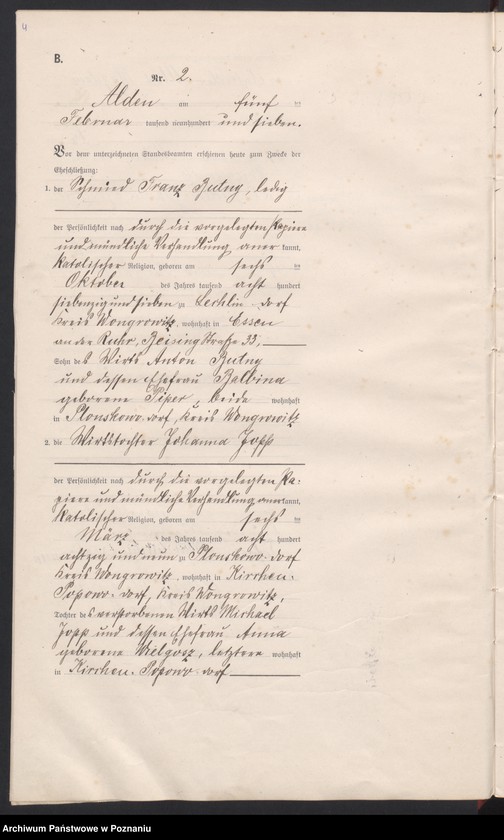 4
B.
Nr. 2.
Alden am fünf ten
Februar tausend neunhundert und sieben.
Vor dem unterzeichneten Standesbeamten erschienen heute zum Zwecke der
Eheschließung:
1. der Schmied Franz Rutny, ledig
der Persönlichkeit nach durch die vorgelegten Papiere
und mündliche Verhandlung aner kannt,
katolischer Religion, geboren am sechs ten
Oktober des Jahres tausend acht hundert
siebenzig und sieben zu Lechlin dorf
Kreis Wongrowitz, wohnhaft in Essen
an der Ruhr, Straße 33,
Sohn des Wirts Anton Rutny
und dessen Ehefrau Balbina
geborene Piper, beide wohnhaft
in Plonskowo dorf, Kreis Wongrowitz
2. die Wirtstochter Johanna Jopp
der Persönlichkeit nach durch die vorgelegten Pa-
piere und mündliche Verhandlung aner kannt,
katolischer Religion, geboren am sechs ten
März des Jahres tausend acht hundert
achtzig und neun zu Plonskowo dorf
Kreis Wongrowitz, wohnhaft in Kirchen-
Popowo-dorf, Kreis Wongrowitz,
Tochter des verstorbenen Wirts Michael
Jopp und dessen Ehefrau Anna
geborene Welgosz, letztere wohnhaft
in Kirchen-Popowo dorf
Archiwum Państwowe w Poznaniu